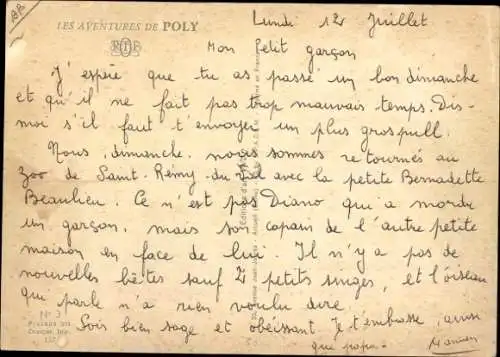 LES AVENTURES DE POLY
Lundi 12 Juillet
Mon Petit garçon
J'espère que tu as passé un bon dimanche
et qu'il ne fait pas trop mauvais temps. Dis-
moi s'il faut t'envoyer un plus gros pull.
Nous, dimanche, nous sommes retournés au
zoo de Saint-Rémy-du-Val avec la petite Bernadette
Beaulieu. Ce n'est pas Diano qui a mordu
un garçon, mais son copain de l'autre petite
maison en face de lui. Il n'y a pas de
nouvelles bêtes sauf 2 petits singes, et l'oiseau
qui parle n'a rien voulu dire.
Sois bien sage et obéissant. Je t'embrasse, ainsi
que papa. Maman
N° 3